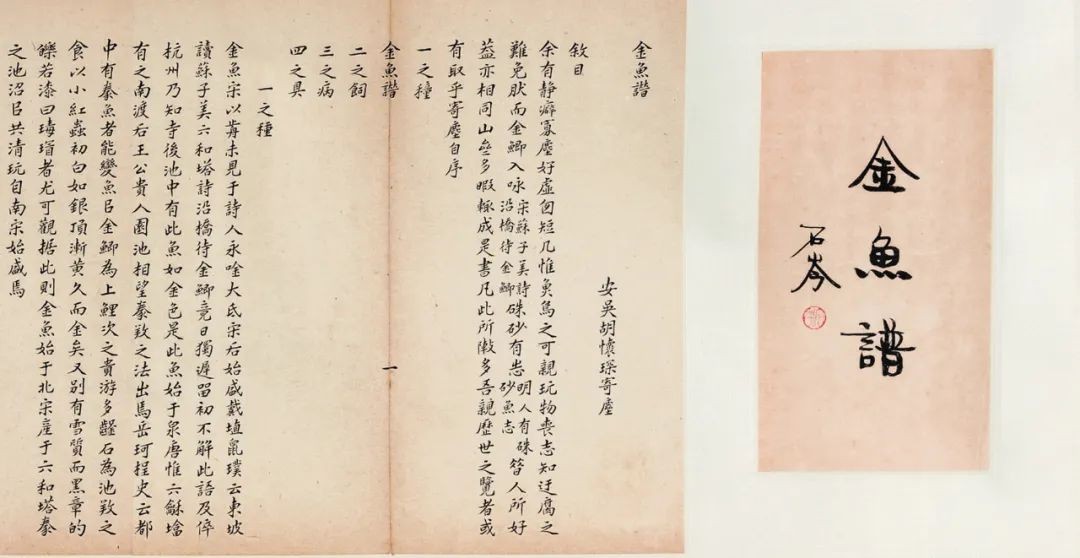 金魚譜
石岑
金魚譜
安吳胡懷琛寄塵
敘目
余有静癖寡塵好虛囱短几惟奐鳥之可親玩物喪志知迂腐之
難免肰而金鯽入咏宋蘇子美詩沿橋待金鯽硃砂有志明人有硃砂魚志㫺人所好
葢亦相同山壘多暇輒成是書凡此所㪣多吾親歷世之覽者或
有取乎寄塵自序
一之種
金魚譜 一
二之飼
三之病
四之具
一之種
金魚宋以歬未見于詩人永唫大氐宋后始盛戴埴鼠璞云東坡
讀蘇子美六和塔詩沿橋待金鯽竟日獨遲畱初不解此語及倅
杭州乃知寺後池中有此魚如金色是此魚始于泉唐惟六龢墖
有之南渡后王公貴人園池相望豢致之法出焉岳珂桯史云都
中有豢魚者能變魚㠯金鯽為上鯉次之貴游多鑿石為池致之
食以小紅蟲初白如銀頂漸黃久而金矣又別有雪質而黑章的
皪若漆曰瑇瑁者尤可觀据此則金魚始于北宗產于六和塔豢
之池沼㠯共清玩自南宋始盛焉